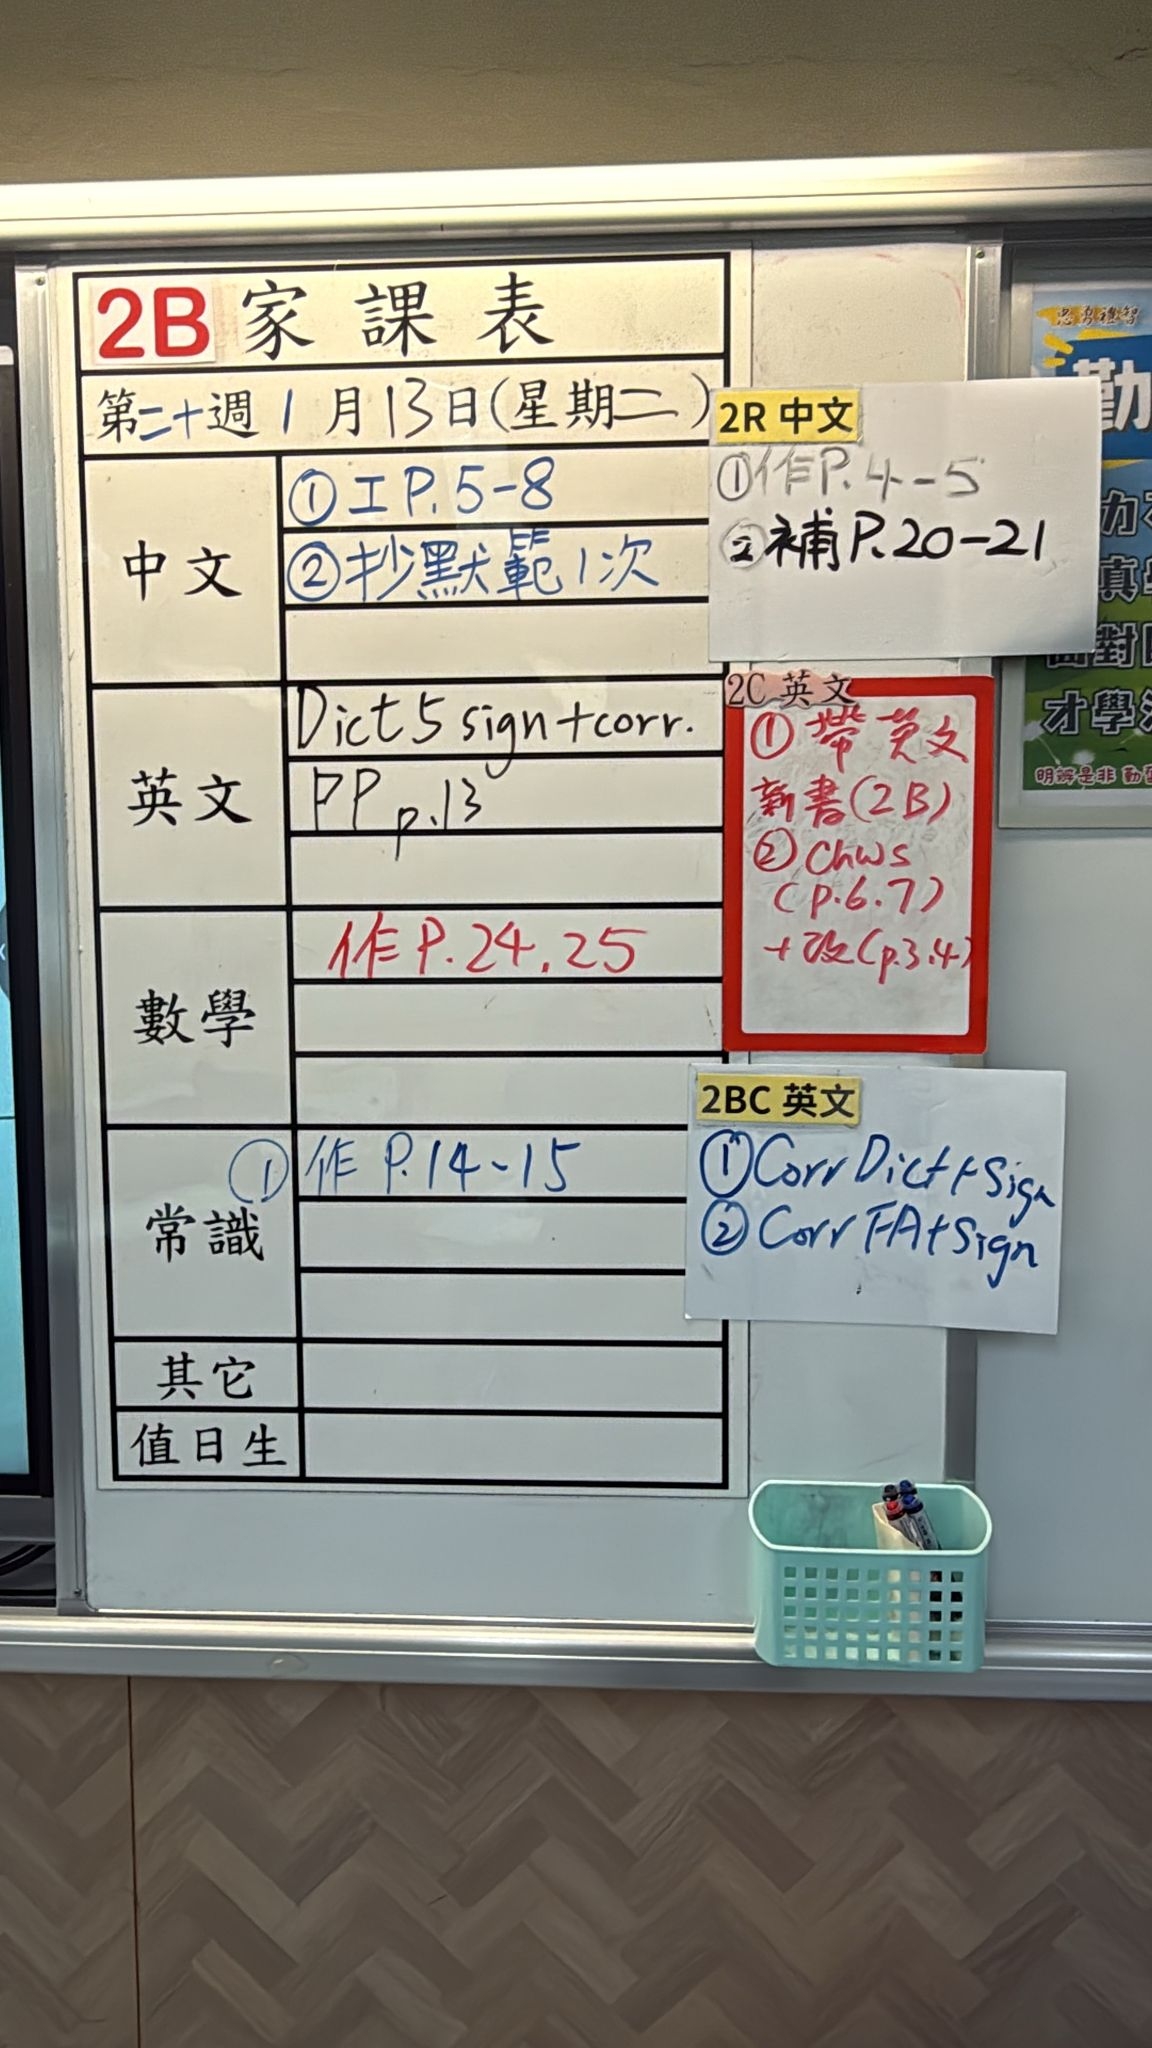 2B 家課表
第二十週 1月13日(星期二)
中文
①工P.5-8
②抄默範1次
英文
Dict 5 sign+corr.
PP p.13
數學
作P.24,25
常識
①作P.14-15
其它
值日生
2R 中文
①作P.4-5
②補P.20-21
2C 英文
①帶英文
新書(2B)
②Chws
(p.6.7)
+改(p.3.4)
2BC 英文
①Corr Dict+Sign
②Corr FA+Sign
忠勇禮智
勤
明辨是非 勤